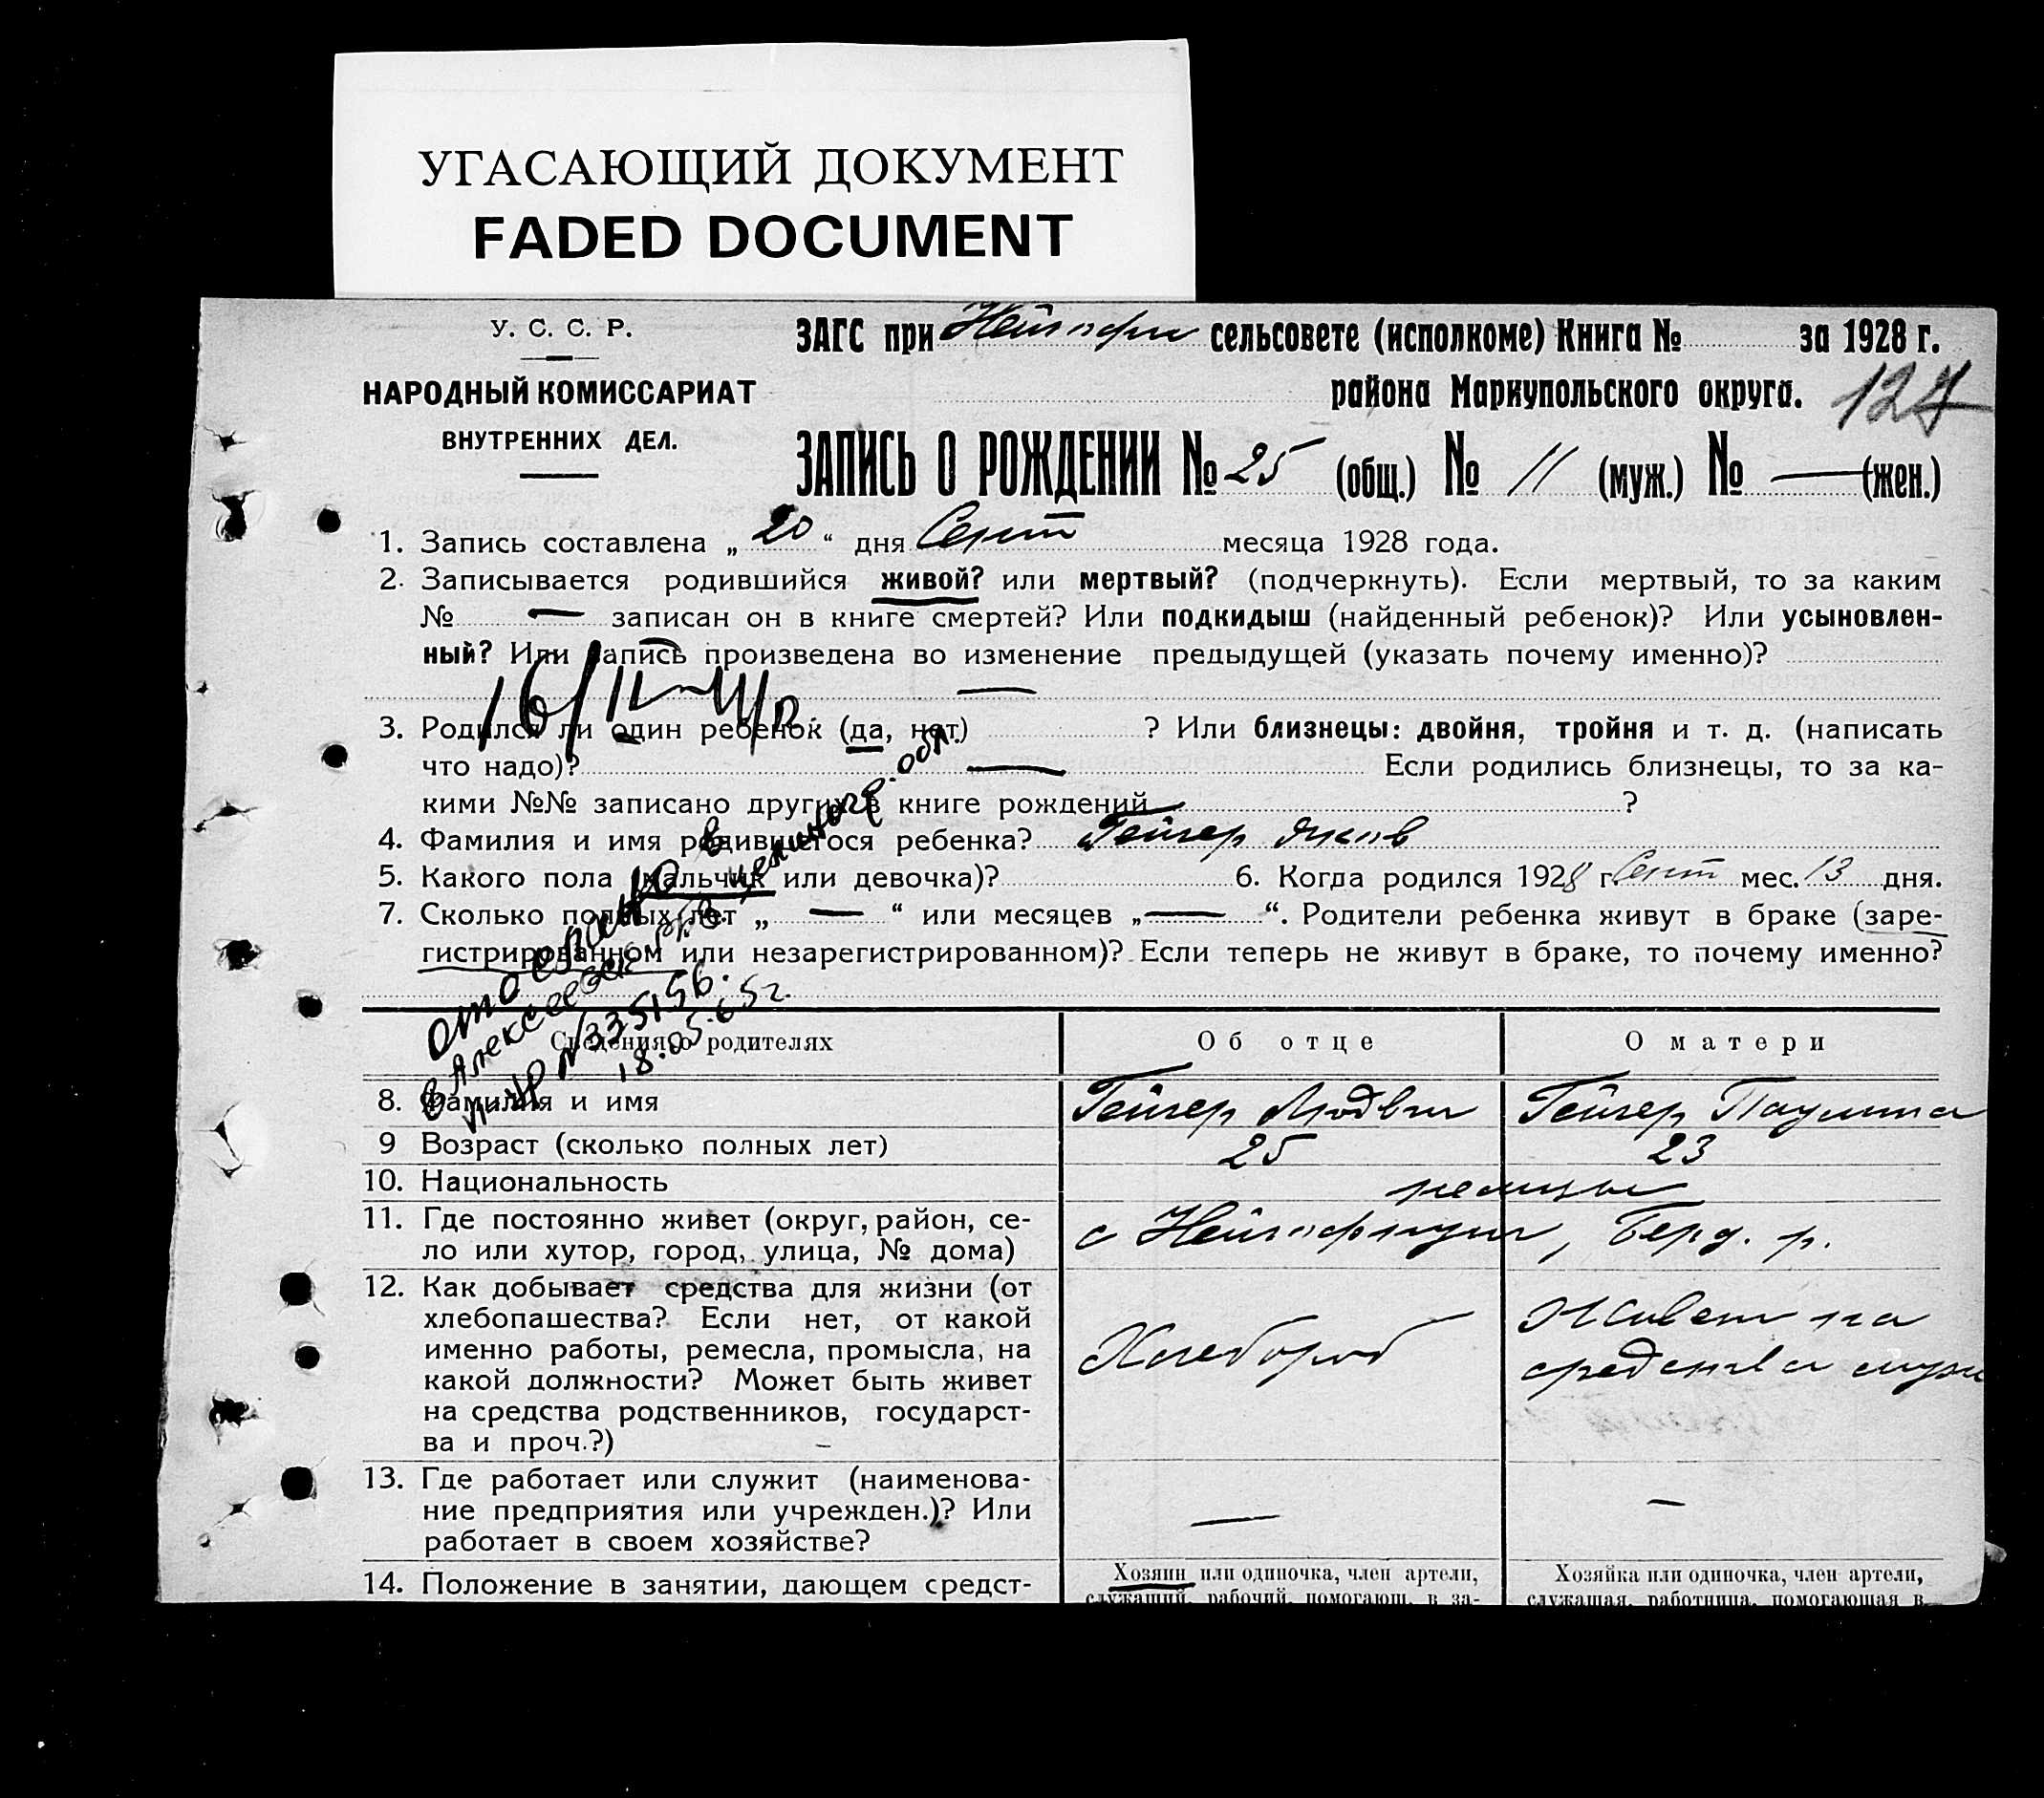 УГАСАЮЩИЙ ДОКУМЕНТ
FADED DOCUMENT
У. С. С. Р.
НАРОДНЫЙ КОМИССАРИАТ
ВНУТРЕННИХ ДЕЛ.
ЗАГС при сельсовете (исполкоме) Книга № за 1928 г.
района Мариупольского округа.
127
ЗАПИСЬ О РОЖДЕНИИ № 25 (общ.) № 11 (муж.) № — (жен.)
1. Запись составлена „ 20 “ дня Сент месяца 1928 года.
2. Записывается родившийся живой? или мертвый? (подчеркнуть). Если мертвый, то за каким
№ — записан он в книге смертей? Или подкидыш (найденный ребенок)? Или усыновлен-
ный? Или запись произведена во изменение предыдущей (указать почему именно)?
—
3. Родился ли один ребенок (да, нет) ? Или близнецы: двойня, тройня и т. д. (написать
что надо)? — Если родились близнецы, то за ка-
кими №№ записано других в книге рождений — ?
4. Фамилия и имя родившегося ребенка? Гейгер Яков
5. Какого пола (мальчик или девочка)? 6. Когда родился 1928 г. Сент мес. 13 дня.
7. Сколько полных лет „ — “ или месяцев „ — “. Родители ребенка живут в браке (заре-
гистрированном или незарегистрированном)? Если теперь не живут в браке, то почему именно?
отослано в
в Алексеевск
№ 335156.
18.05.65г.
Сведения о родителях
Об отце
О матери
8. Фамилия и имя
Гейгер Людвиг
Гейгер Паулина
9 Возраст (сколько полных лет)
25
23
10. Национальность
немцы
11. Где постоянно живет (округ, район, се-
ло или хутор, город, улица, № дома)
с , Берд. р.
12. Как добывает средства для жизни (от
хлебопашества? Если нет, от какой
именно работы, ремесла, промысла, на
какой должности? Может быть живет
на средства родственников, государст-
ва и проч.?)
Хлебороб
Живет на
средства мужа
13. Где работает или служит (наименова-
ние предприятия или учрежден.)? Или
работает в своем хозяйстве?
—
—
14. Положение в занятии, дающем средст-
Хозяин или одиночка, член артели,
служащий, рабочий, помогающ. в за-
Хозяйка или одиночка, член артели,
служащая, работница, помогающая в